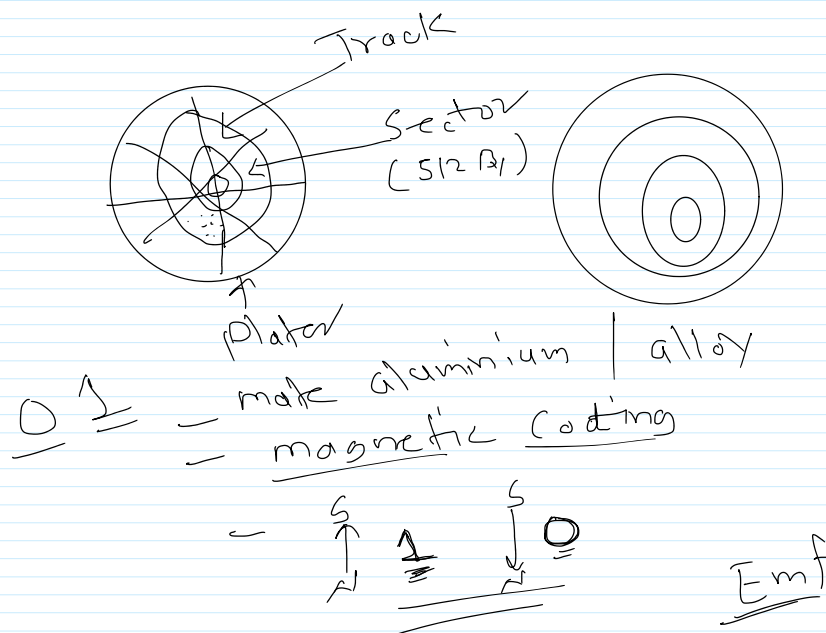 Track
Sector
(512 By)
Plater
0 1
- make aluminium | alloy
- magnetic coding
- S S
1 0
N N
Emf